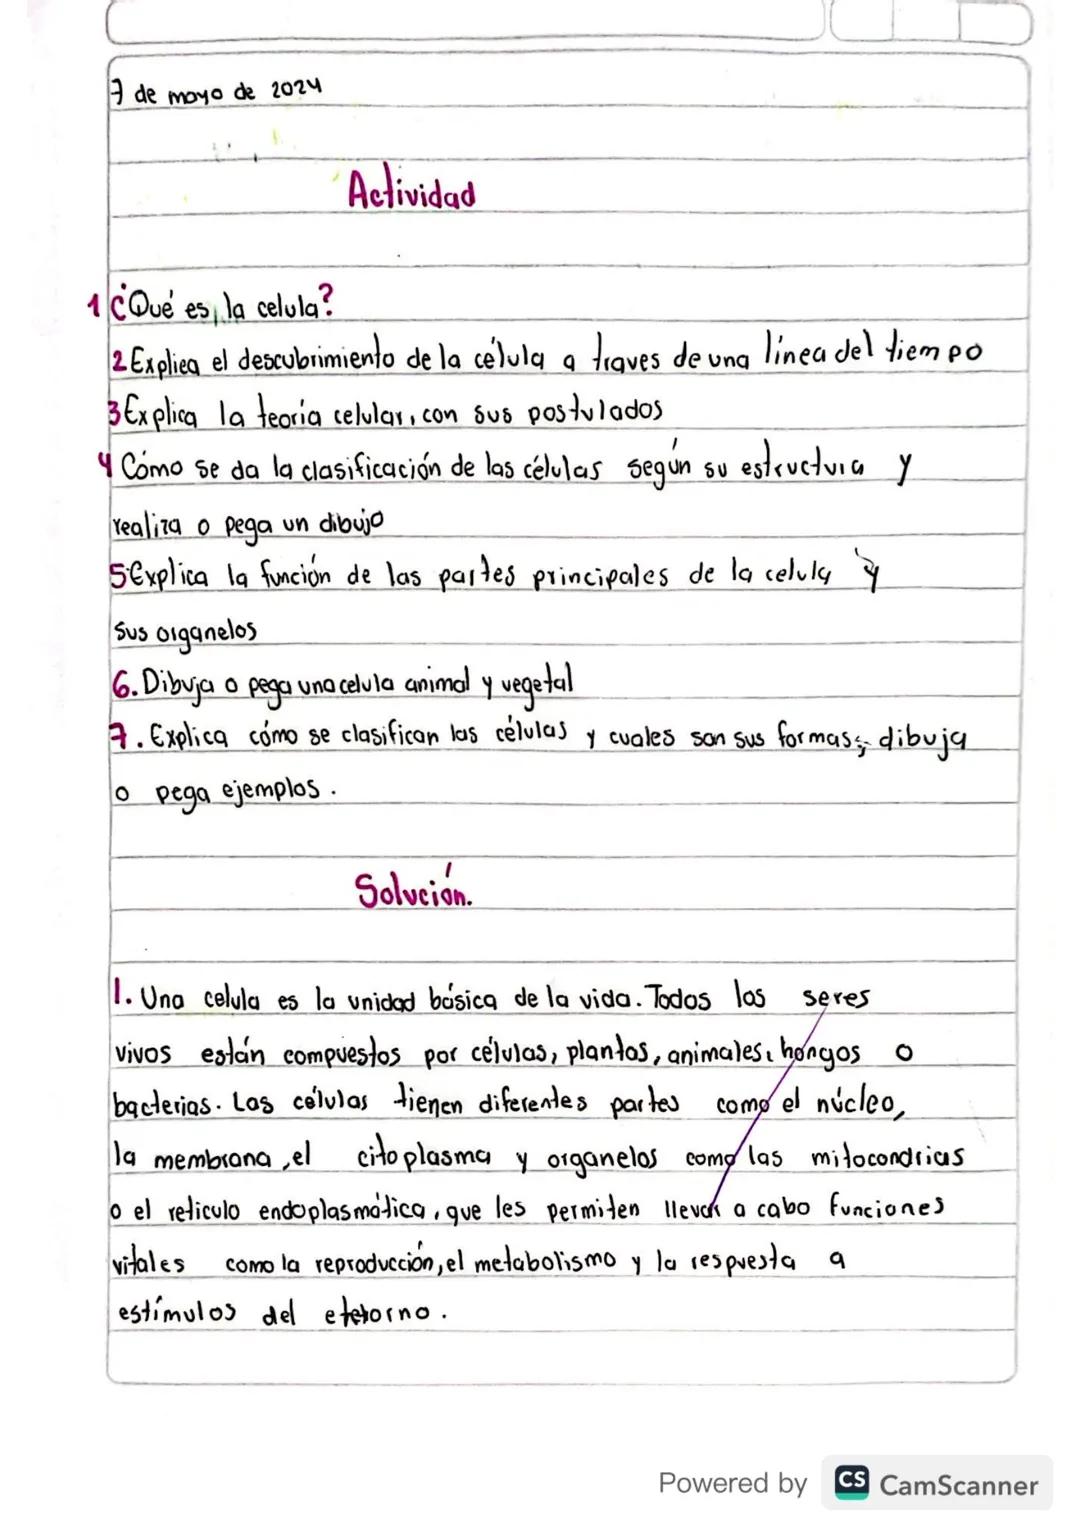 7 de mayo de 2024
Actividad
1 ¿Qué es la celula?
2 Explica el descubrimiento de la célula a traves de una línea del tiempo
3 Explica la teoría celular, con sus postulados
4 Cómo se da la clasificación de las células según su estructura y
realiza o pega un dibujo
5 Explica la función de las partes principales de la celula y
sus organelos
6. Dibuja o pega una celula animal y vegetal
7. Explica cómo se clasifican las células y cuales son sus formas, dibuja
o pega ejemplos.
Solución.
1. Una celula es la unidad básica de la vida. Todos los seres
vivos están compuestos por células, plantas, animales, hongos o
bacterias. Las células tienen diferentes partes como el núcleo,
la membrana, el citoplasma y organelos como las mitocondrias
o el reticulo endoplasmática, que les permiten llevar a cabo funciones
vitales como la reproducción, el metabolismo y la respuesta a
estímulos del
Powered by CS CamScanner